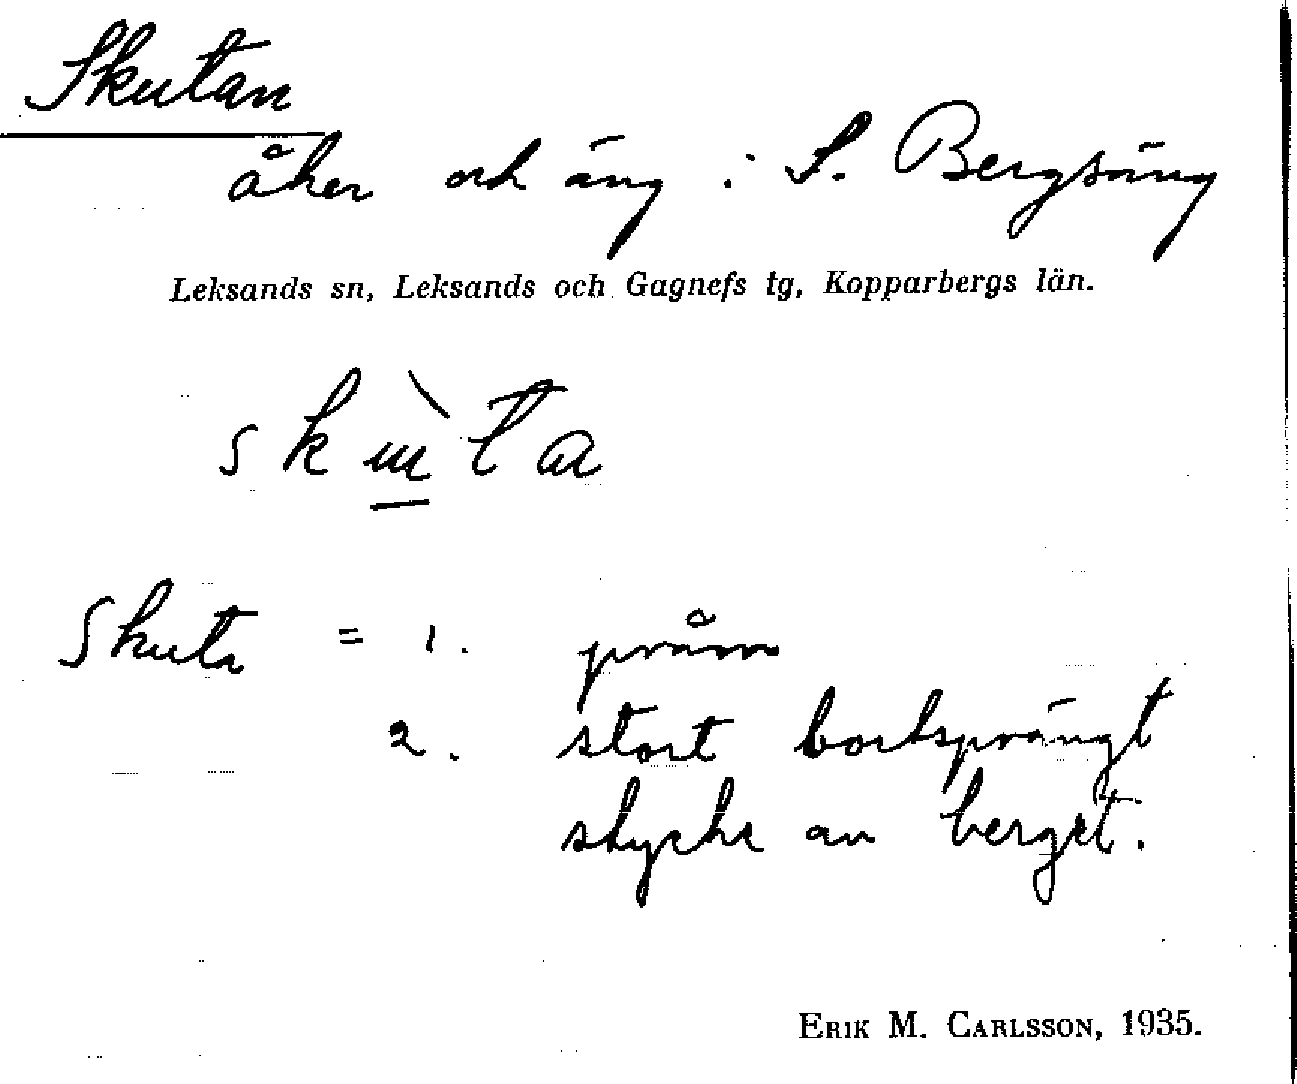 Skutan
åker och äng i S. Bergsäng
Leksands sn, Leksands och Gagnefs tg, Kopparbergs län.
skɯ̀ta
Skuta = 1. pråm
2. stort bortsprängt
stycke av berget.
ERIK M. CARLSSON, 1935.